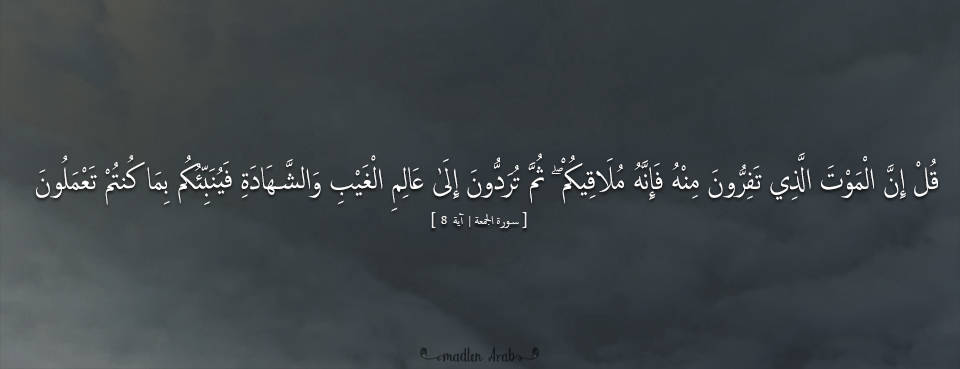 قُلْ إِنَّ الْمَوْتَ الَّذِي تَفِرُّونَ مِنْهُ فَإِنَّهُ مُلَاقِيكُمْ ۖ ثُمَّ تُرَدُّونَ إِلَىٰ عَالِمِ الْغَيْبِ وَالشَّهَادَةِ فَيُنَبِّئُكُم بِمَا كُنتُمْ تَعْمَلُونَ
[ سورة الجمعة | آية 8 ]
madlen Arab